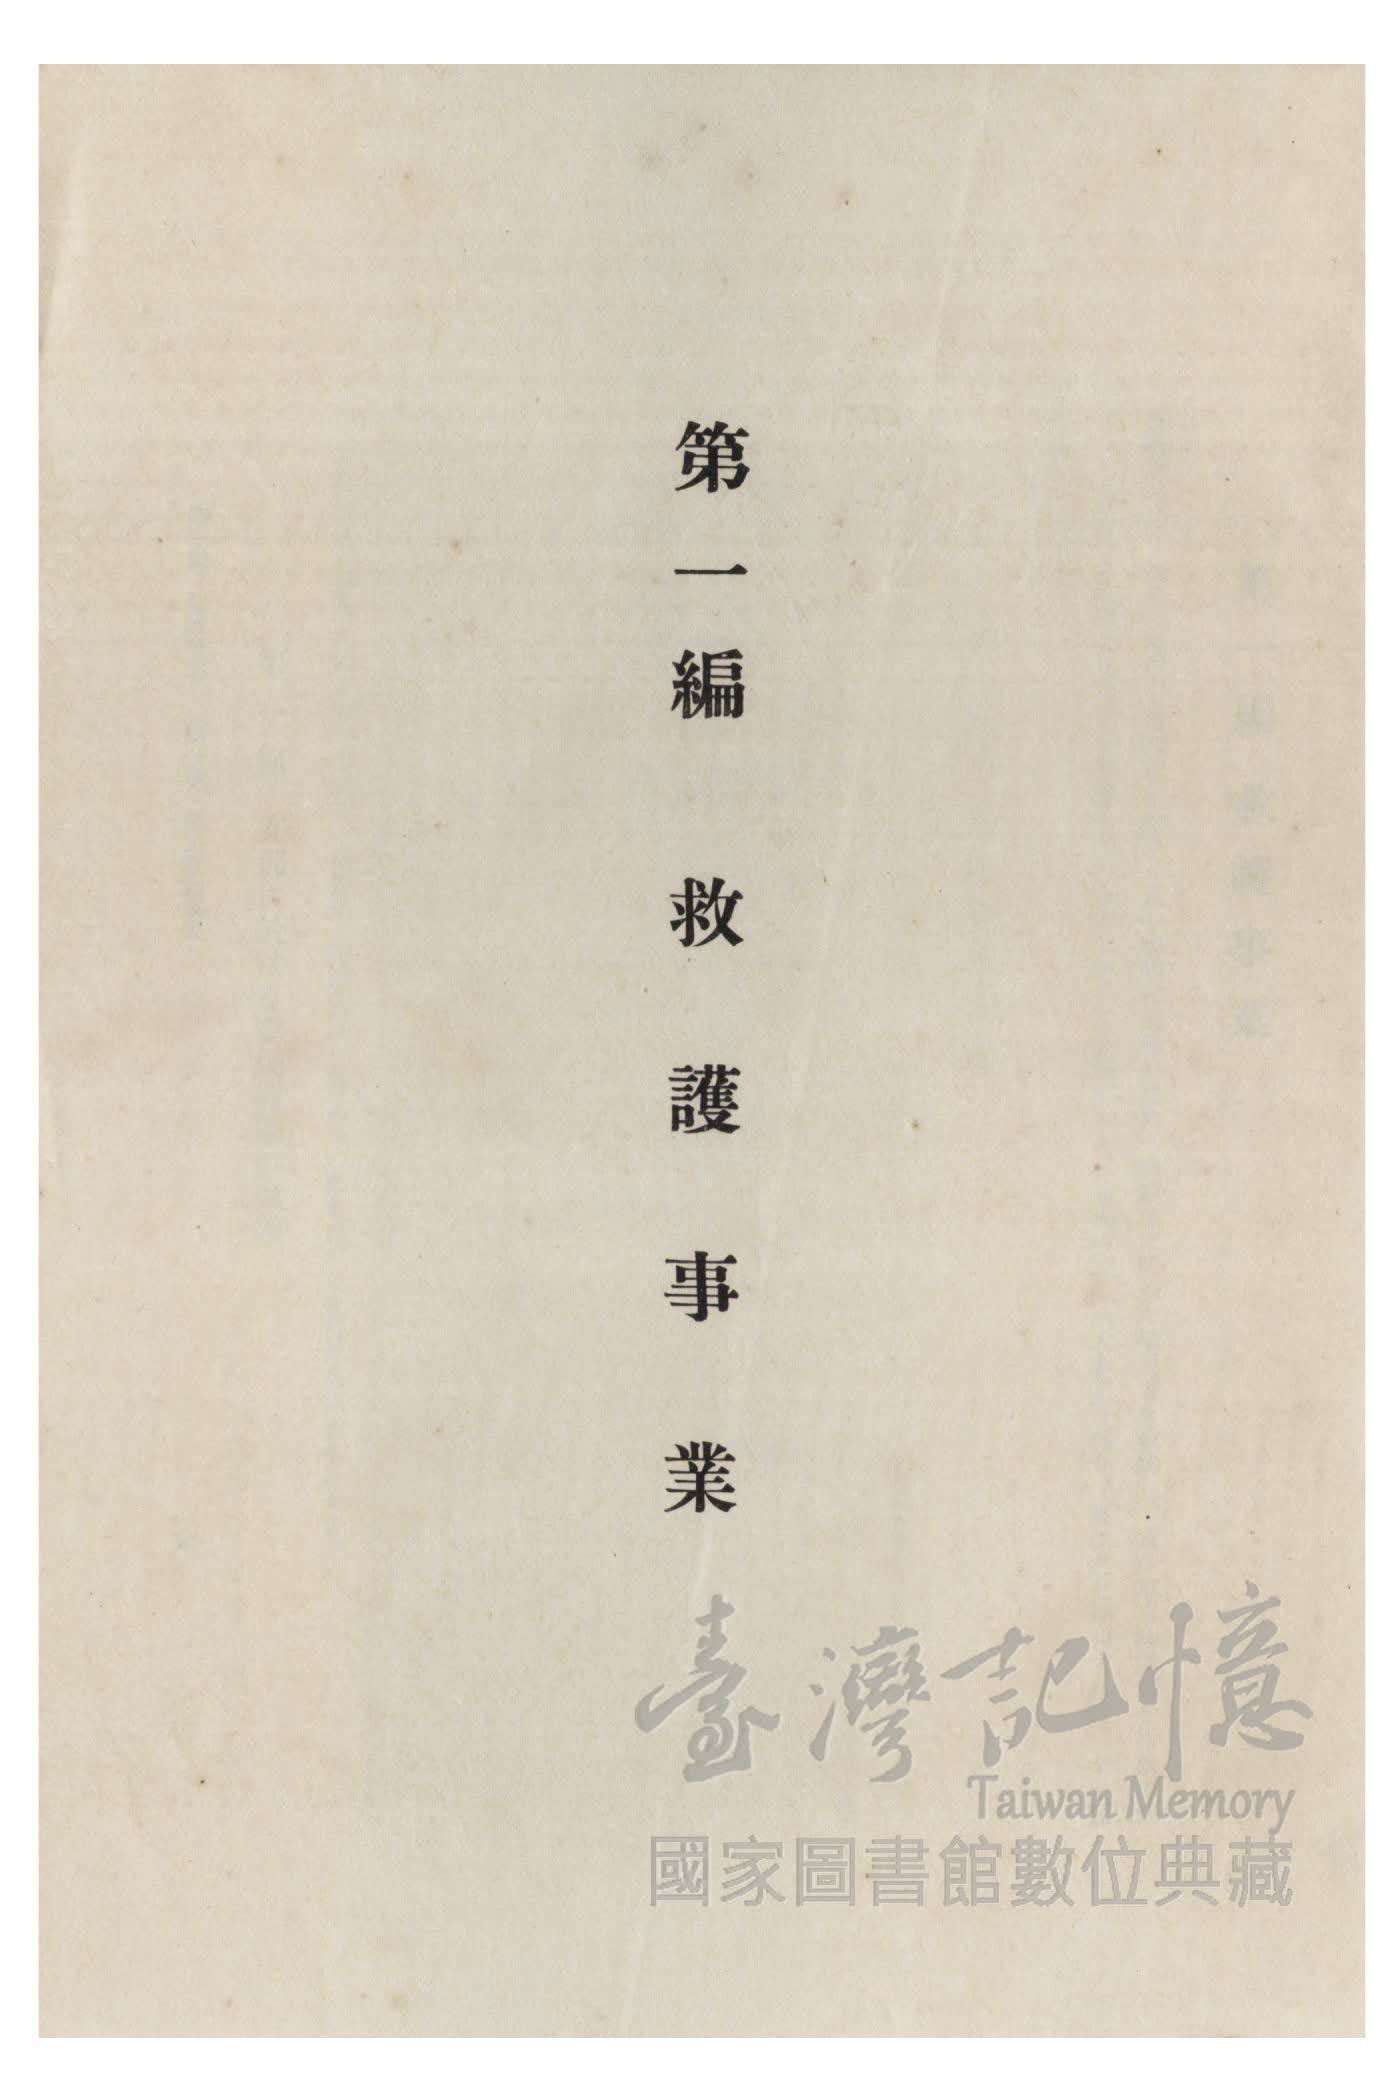 第一編 救護事業
臺灣記憶
Taiwan Memory
國家圖書館數位典藏